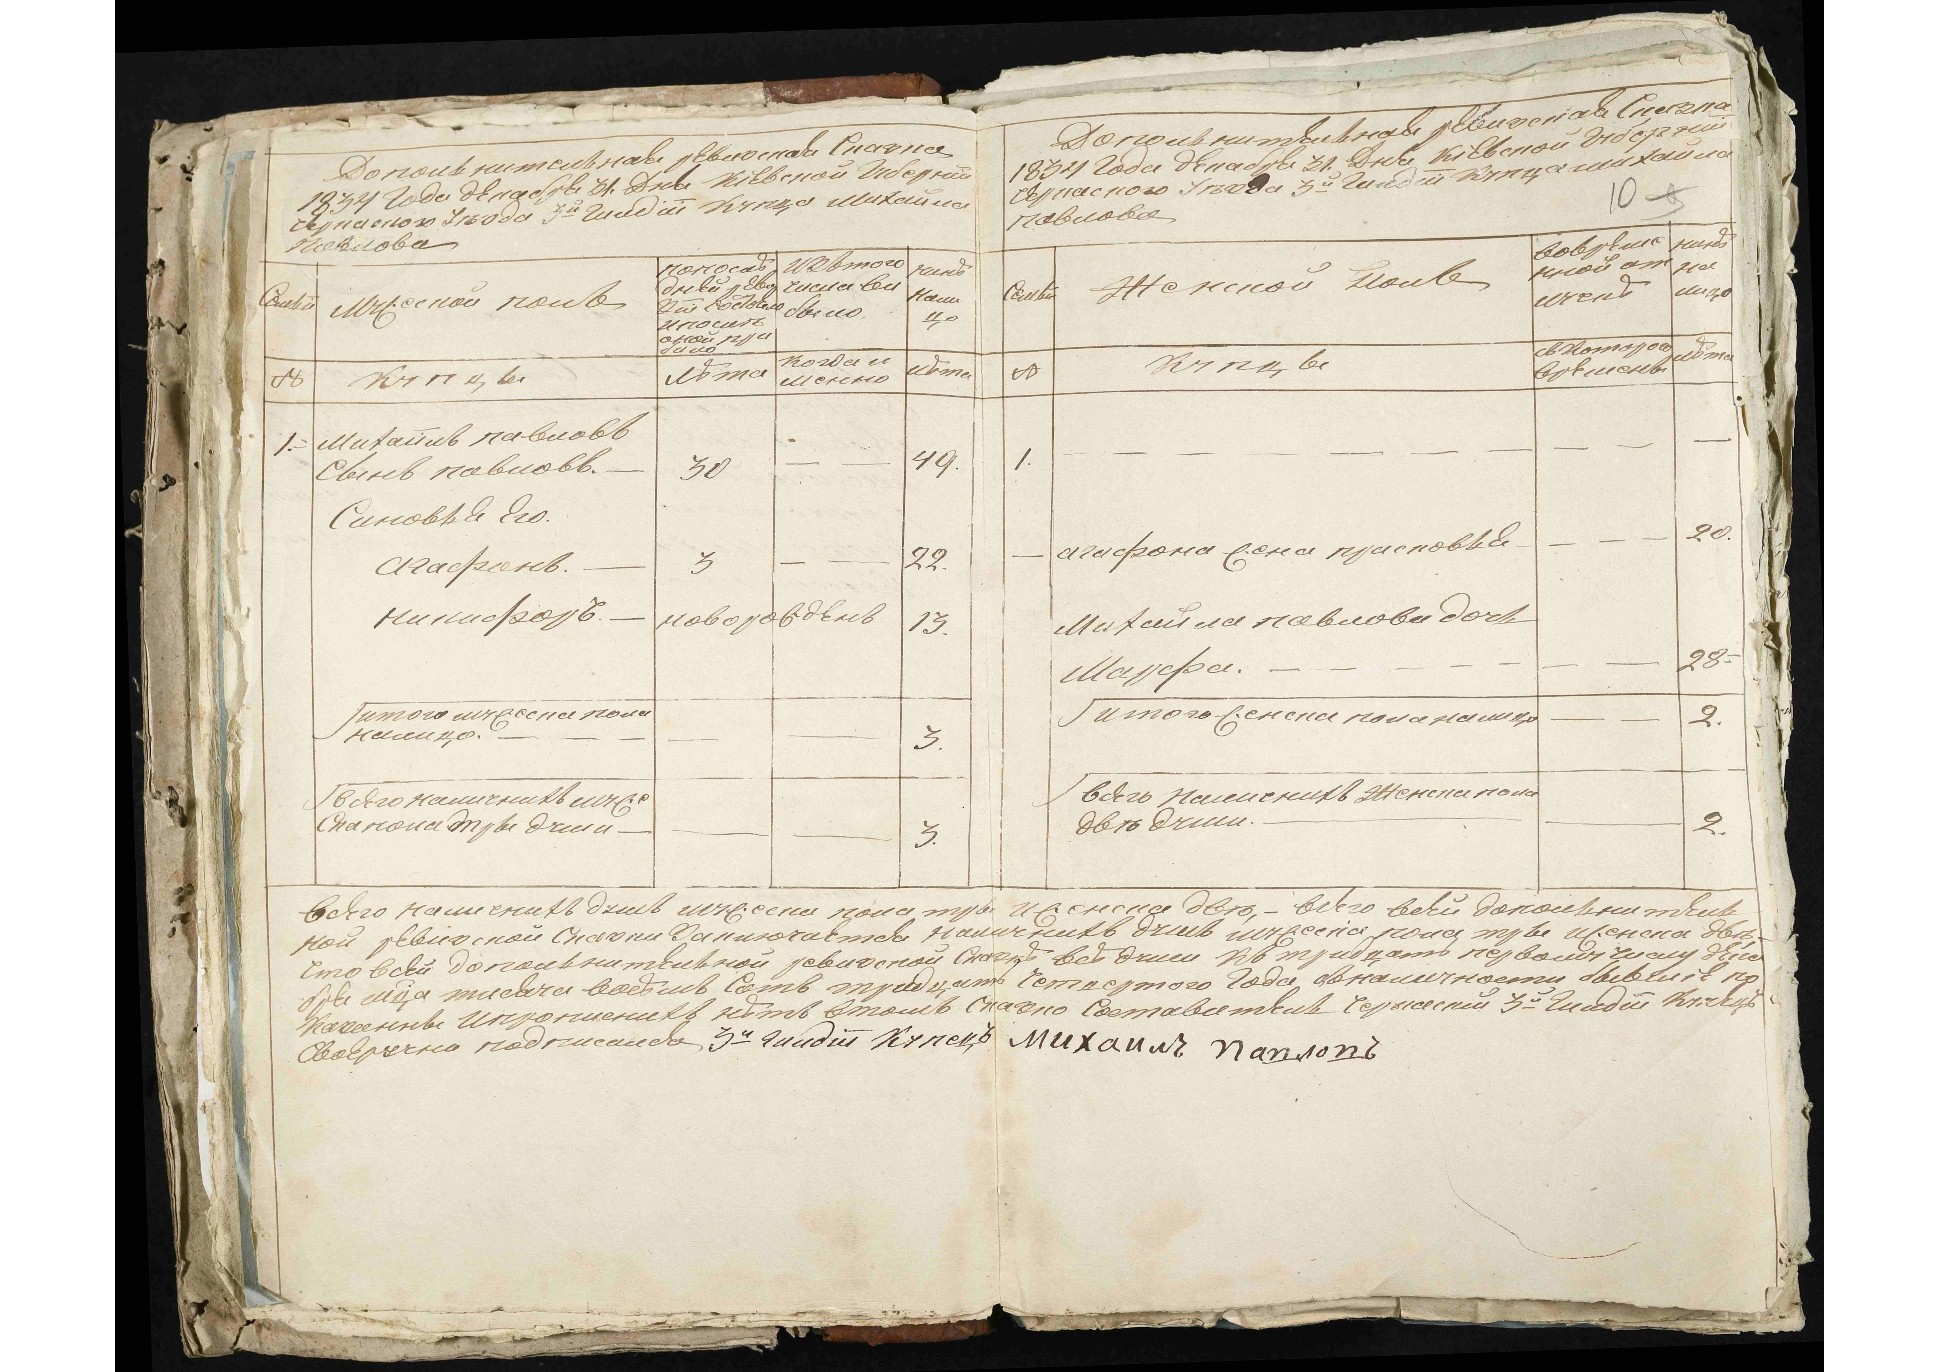 Дополнителная ревизская Скаска
1834 Года декабря 31. Дня Кіевской Губерніи
Черкаского Уезда 3й Гилдіи Купца Михайла
Павлова
Семьи
Мужеской полъ
по последней ревизіи состояло и после оной прибило
Изътого числа выбыло
нинѣ нали цо
№
Купцы
Лѣта
Когда и менно
лѣта
1.
Михайлъ павловъ
Сынъ павловъ. — 30 — — 49.
Синовья Его.
Агафонъ. — 3 — — 22.
Никифоръ. — новорожденъ 13.
итого мужеска пола
налицо. — — — — — — 3.
всего наличнихъ муже
ска пола три души — — — 3.
Дополнителная ревизская Скаска
1834 Года декабря 31. Дня Кіевской Губерніи
Черкаского Уезда 3й Гилдіи Купца Михайла
Павлова
10
Семьи
Женской Полъ
вовреме нной от лучкѣ
нинѣ на лицо
№
Купцы
съ Котораго времени
лѣта
1. — — — — — — — — —
— агафона жена прасковья — — — 20.
Михайла павлова дочь
Марфа. — — — — — — — 28
итого женска пола налицо — — 2.
всего наличнихъ Женска пола
двѣ души. — — 2.
всего наличнихъ душъ мужеска пола три и женска двѣ, — всего всей дополнител
ной ревизской Скаски Заключается наличнихъ душъ мужеска пола три и женска двѣ
что всей дополнителной ревизской Скаскѣ всѣ души Къ тридцать первому числу дека
бря мца тисяча восемь Сотъ тридцать Четвертого Года, вналичности бывшіе по
Казанны И прописнихъ нѣтъ втомъ Скаско Составитель Черкаский 3й Гилдіи Купецъ
Своеручно подписался 3й Гилдіи Купецъ Михаилъ Паплопъ